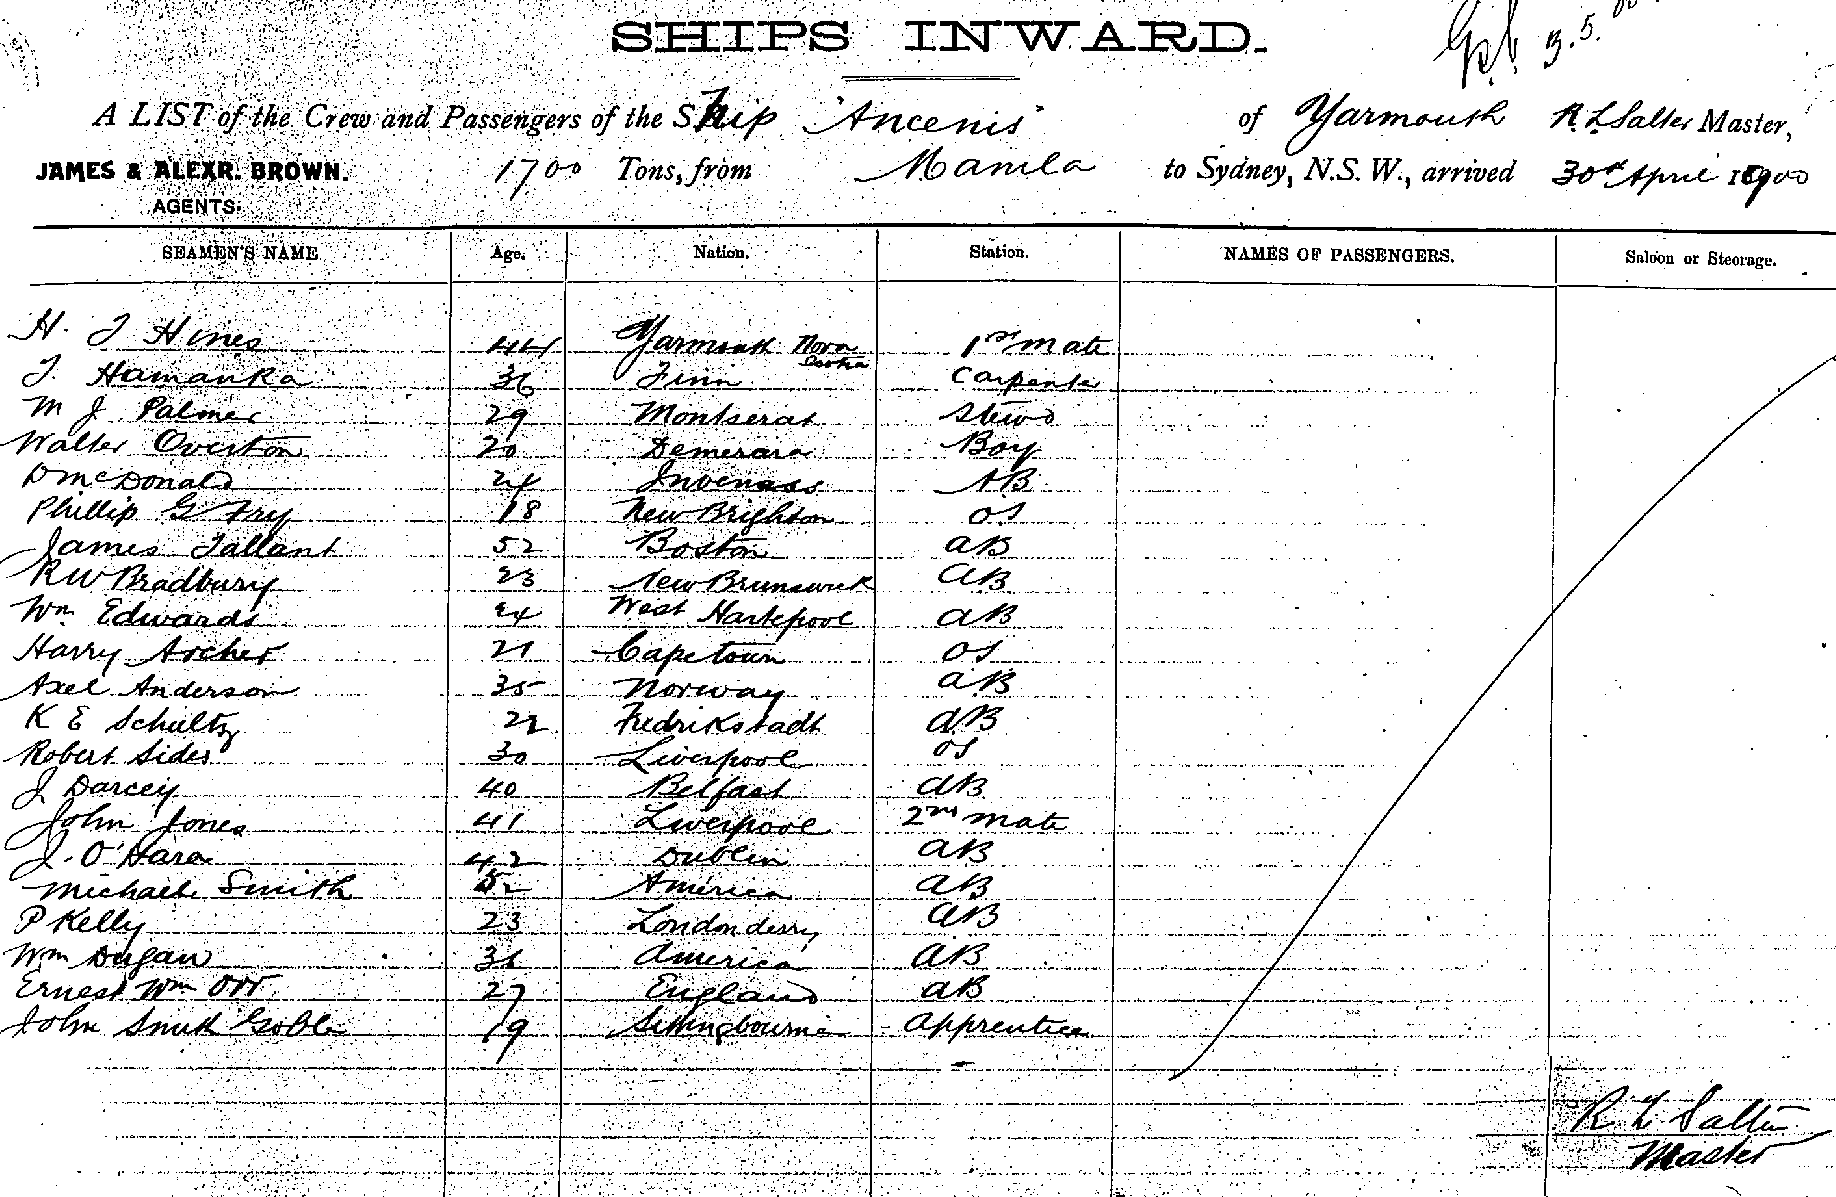 SHIPS INWARD.
3.5.00
A LIST of the Crew and Passengers of the Ship "Ancenis" of Yarmouth R. L Salter Master,
JAMES & ALEXR. BROWN. 1700 Tons, from Manila to Sydney, N.S.W., arrived 30th April 1900
AGENTS.
SEAMEN'S NAME Age. Nation. Station. NAMES OF PASSENGERS. Saloon or Steerage.
H. J Hines 44 Yarmouth Nova Scotia 1st mate
J. Hamanka 36 Finn Carpenter
M J Palmer 29 Montserat Stewd
Walter Overton 20 Demerara Boy
D McDonald 24 Inverness AB
Phillip G Fry 18 New Brighton OS
James Tallant 52 Boston AB
R W Bradbury 23 New Brunswick AB
Wm Edwards 24 West Hartepool AB
Harry Archer 21 Capetown OS
Axel Anderson 35 Norway AB
K E Schultz 22 Fredrikstadt AB
Robert Sides 30 Liverpool OS
J Darcey 40 Belfast AB
John Jones 41 Liverpool 2nd mate
J. O'Hara 42 Dublin AB
Michael Smith 52 America AB
P Kelly 23 Londonderry AB
Wm Dugan 36 America AB
Ernest Wm Orr 27 England AB
John Goble 19 Sittingbourne Apprentice
R L Salter
Master